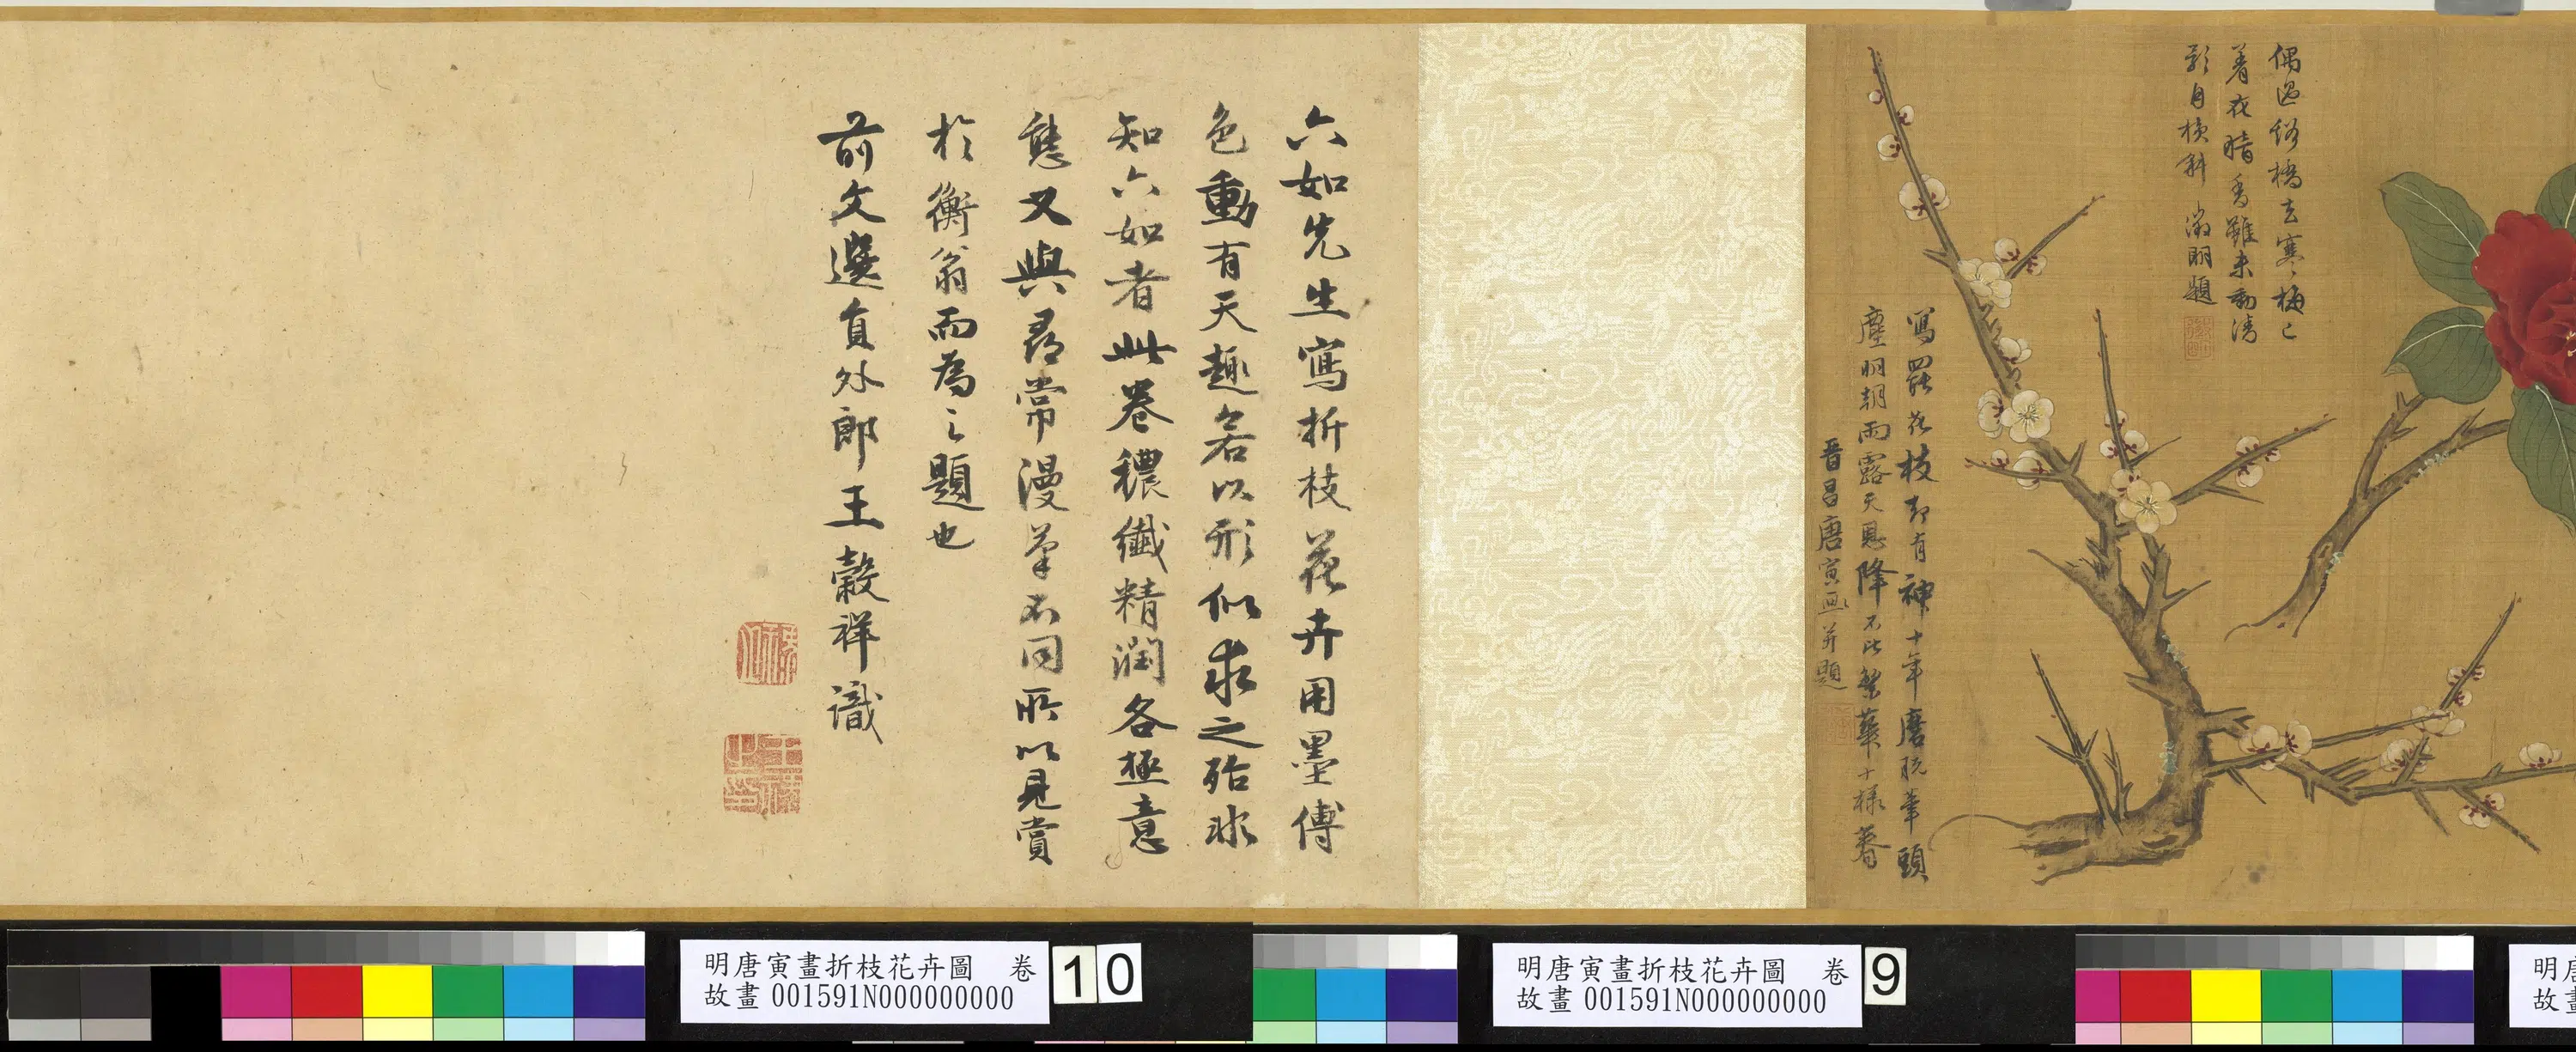 偶過溪橋去寒〻梅已
著花暗香雖未動清
影月橫斜 徵明題
寫罷花枝却有神十年磨脫筆頭
塵明朝雨露天恩降不比繁華十樣春
晉昌唐寅画并題
六如先生寫折枝花卉用墨傅
色動有天趣若以形似求之殆非
知六如者此卷穠纖精潤各極意
態又與尋常漫筆不同所以見賞
於衡翁而為之題也
前文選員外郎王穀祥識
明唐寅畫折枝花卉圖 卷
故畫 001591N000000000
10
明唐寅畫折枝花卉圖 卷
故畫 001591N000000000
9